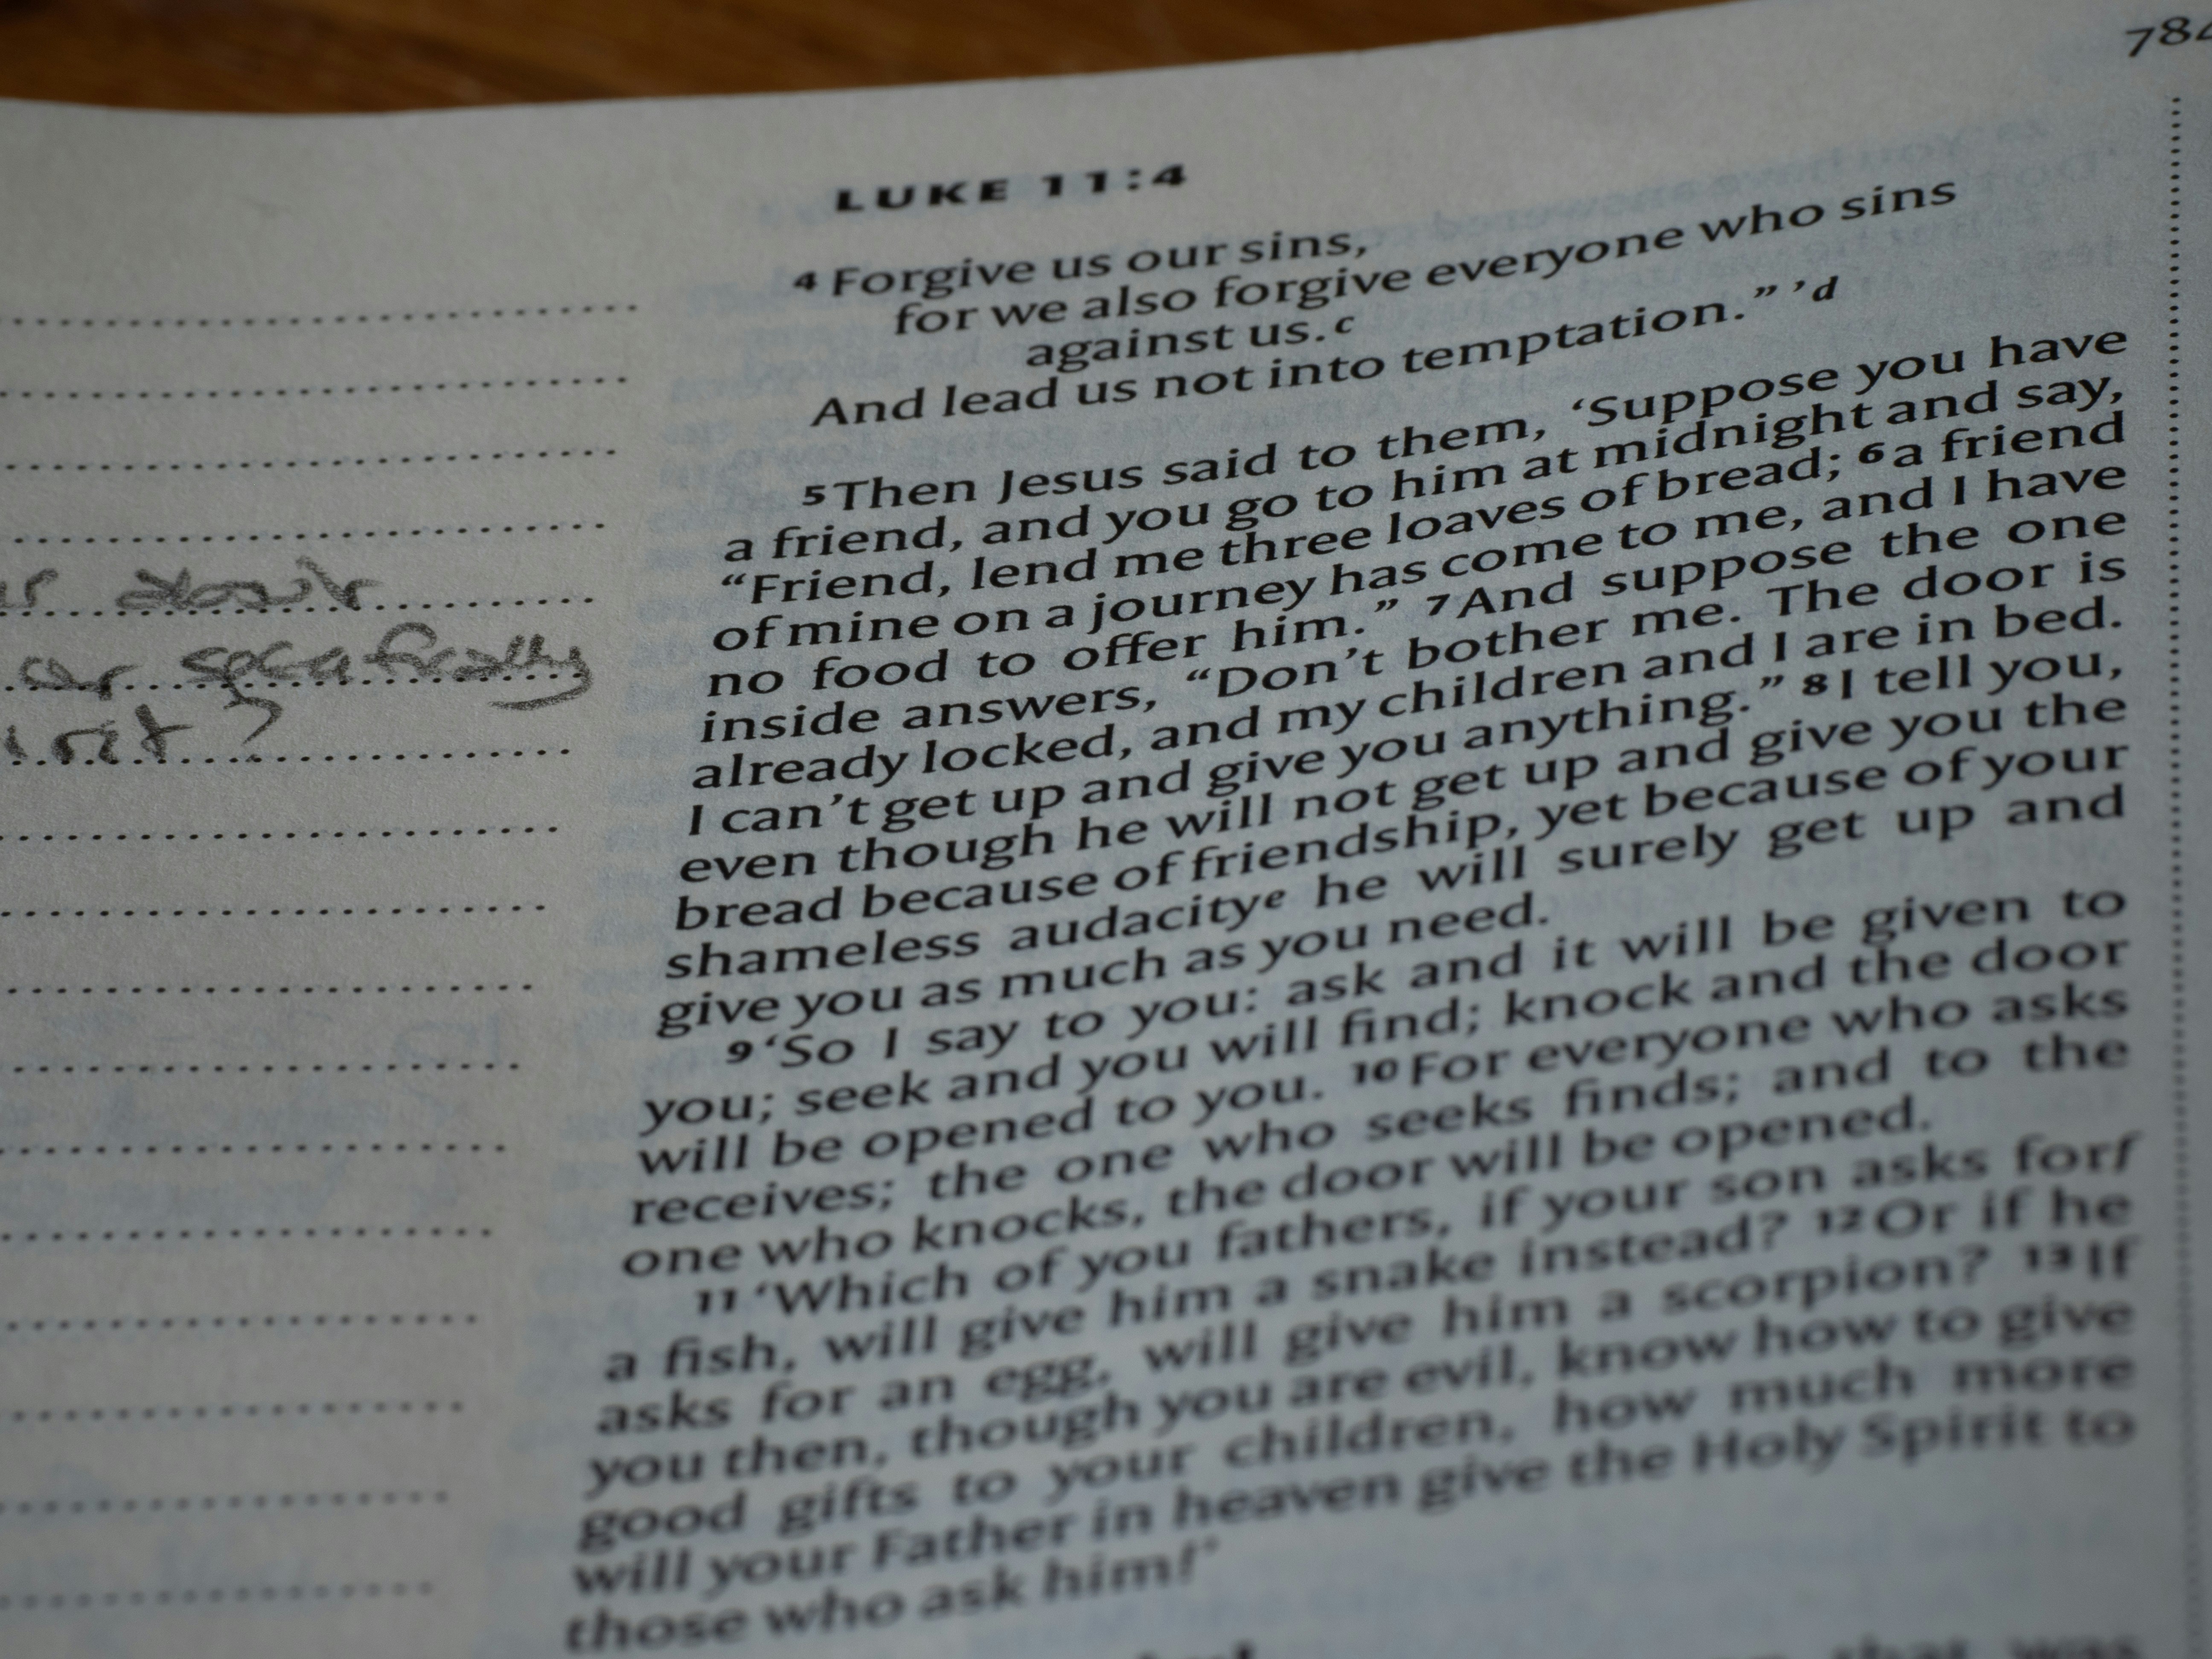 784
LUKE 11:4
4 Forgive us our sins,
for we also forgive everyone who sins
against us.c
And lead us not into temptation.” ’d
5 Then Jesus said to them, ‘Suppose you have
a friend, and you go to him at midnight and say,
“Friend, lend me three loaves of bread; 6 a friend
of mine on a journey has come to me, and I have
no food to offer him.” 7 And suppose the one
inside answers, “Don’t bother me. The door is
already locked, and my children and I are in bed.
I can’t get up and give you anything.” 8 I tell you,
even though he will not get up and give you the
bread because of friendship, yet because of your
shameless audacitye he will surely get up and
give you as much as you need.
9 ‘So I say to you: ask and it will be given to
you; seek and you will find; knock and the door
will be opened to you. 10 For everyone who asks
receives; the one who seeks finds; and to the
one who knocks, the door will be opened.
11 ‘Which of you fathers, if your son asks forf
a fish, will give him a snake instead? 12 Or if he
asks for an egg, will give him a scorpion? 13 If
you then, though you are evil, know how to give
good gifts to your children, how much more
will your Father in heaven give the Holy Spirit to
those who ask him!’
that was
specifically
?